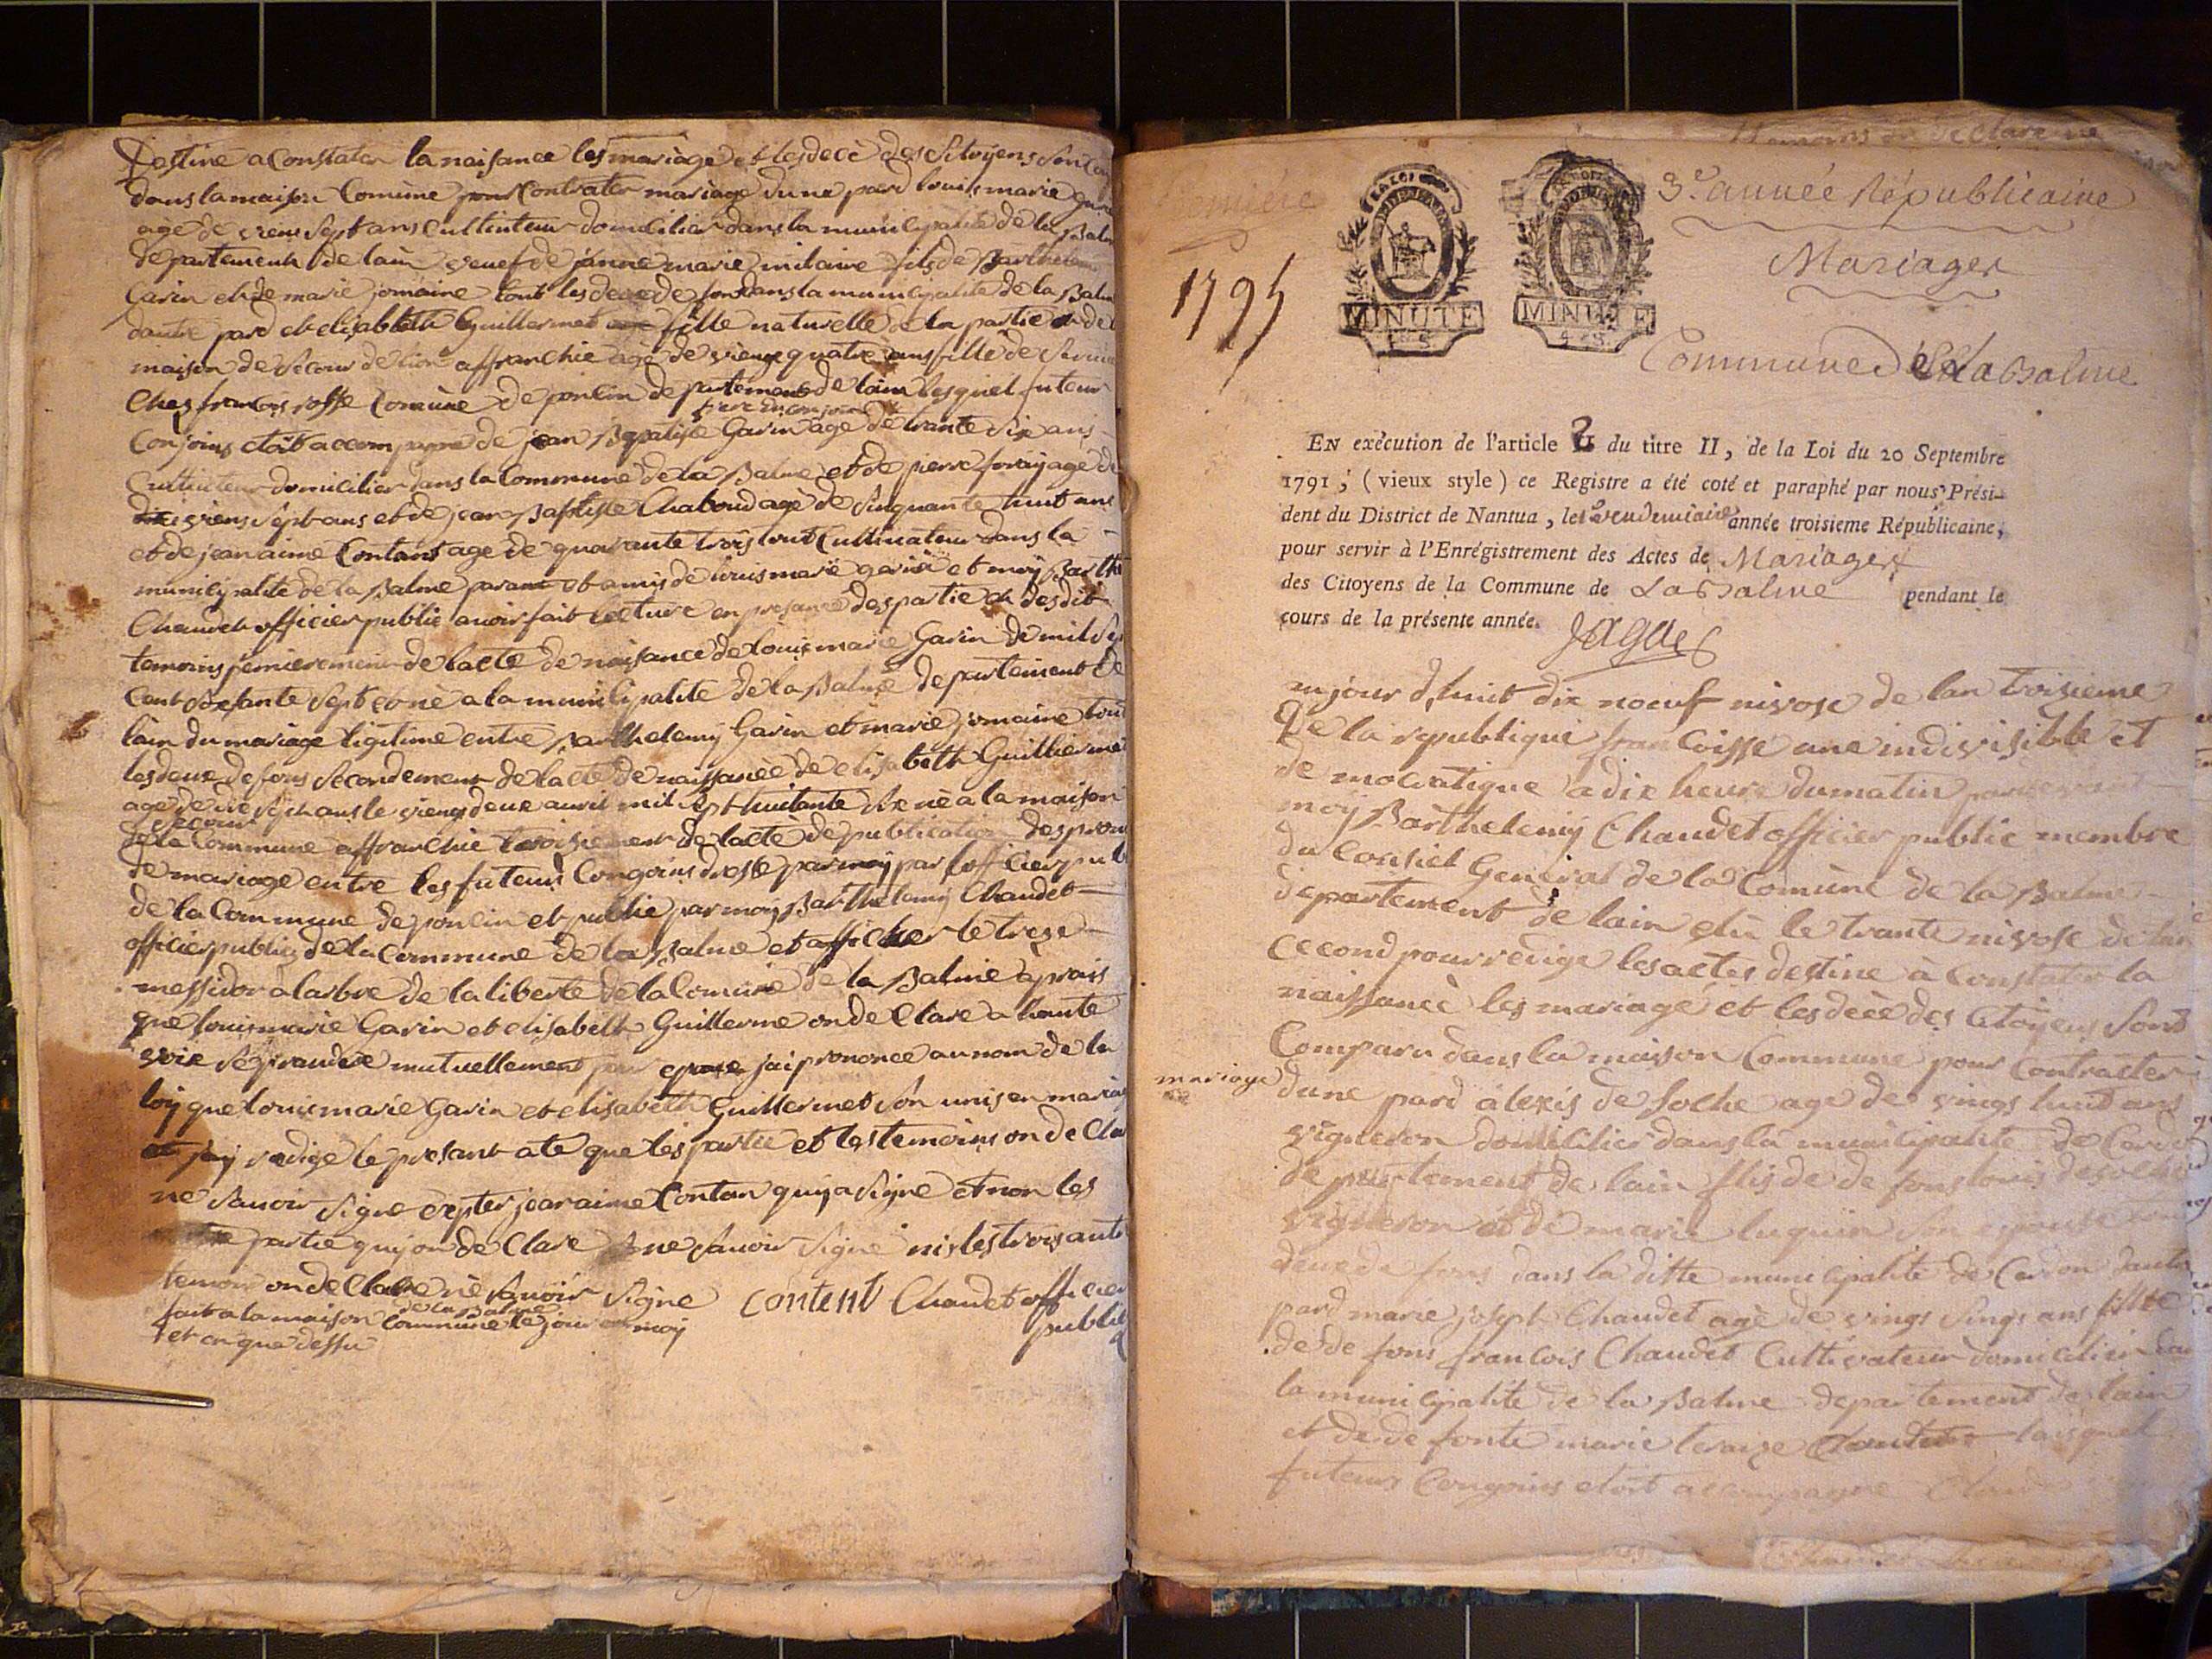 Destine a Constater la naisance les mariage et les decè des Sitoyens son
dans la maison Comùne pour Contrater mariage dune pard louis marie
age de viens Sept ans Cultiuteur domicilier dans la municipalite de la Balm
departement de lain veuf de janne marie milaire fils de Barthelem
Garin et de marie jomaine tout les deux de fons dans la municipalite de la Balm
dautre pard et elisabteth Guillermet fille naturelle de la partie de
maison de secour de lion affranchie age de viens quatre ans fille de
Ches francois rosse Comùne de poncin departement de lain lesquel futeur
frere du conjoins
Conjoins etoit accompagné de jean Baptiste Garin age de trante Six ans
Cultiuteur domicilier dans la Commune de la Balme et de pierre foray age de
viens Sept ans et de jean Baptiste Chaboud age de Sinquante huit ans
et de jean aime Contant age de quarante trois tout Cultiuateur dans la
municipalite de la Balme parant et amis de louis marie garin et moy Barth
Chaudet officier public auoir fait lecture en presance des partie et des dit
temoins premierement de lacte de naisance de louis marie Garin de mil Se
Cent Soixante Sept et nè a la municipalite de la Balme departement de
lain du mariage ligitime entre Barthelemy Garin et marie jomaine tout
les deux de fons Secondement de lacte de naissance de elisabeth Guillermet
age de Sept ans le viens deux auril mil Sept huitante Six nè a la maison
Secour
de la Commune affranchie troisiement de lacte de publication des prom
de mariage entre les futeurs Congoins dresse par moy par lofficier pub
de la Commune de poncin et publie par moy Barthelemy Chaudet
officier public de la Commune de la Balme et afficher le treze
messidor a larbre de la liberte de la Comune de la Balme aprais
que louis marie Garin et elisabeth Guillerme on de Clare a haute
voix Se prandre mutuellement pour epoux jai prononce au nom de la
loy que louis marie Garin et elisabeth Guillermet Son unis en mariag
et jay redige le presant ate que les partie et les temoins on de Cla
ne Sauoir Signe expter jean aime Contan quy a Signe et non les
partie quy on de Clare ne Sauoir Signe ni les trois autr
temoin on de Clare ne Sauoir Signe Content Chaudet officier
public
de la Balme
fait a la maison Commune le jour et moy
et an que dessu
1795
3e. année Républicaine
Mariages
Commune de La Balme
MINUTE
MINUTE
EN exécution de l'article 2 du titre II, de la Loi du 20 Septembre
1791, (vieux style) ce Registre a été coté et paraphé par nous Prési-
dent du District de Nantua, le 1er vendemiaire année troisieme Républicaine,
pour servir à l'Enrégistrement des Actes de Mariages
des Citoyens de la Commune de La Balme pendant le
cours de la présente année.
Jagues
aujour dhuit dix noeuf nivose de lan troisieme
de la republique francoisse une indivisible et
de mocratique a dix heure du matin par devant
moy Barthelemy Chaudet officier public membre
du Consiel General de la Comùne de la Balme
departement de lain elù le trante nivose de lan
Cecond pour redige les actes destine à Constater la
naissancè les mariage et les decè des Citoyens Sont
Comparu dans la maison Commune pour Contracter
mariage
dune pard alexis de Soche age de vings huit ans
vigneron domicilier dans la municipalite de Cerdon
de partement de lain fils de de fons louis desoche
vigneron et de marie luquin Son epouse
deux de fons dans la ditte municipalité de Cerdon dautr
pard marie joseph Chaudet agè de vings Sings ans fille
de de fons francois Chaudet Cultivateur domicilier dan
la municipalité de la Balme departement de lain
et de de fonte marie teraize laisquel
futeurs Congoins etoit accompagne